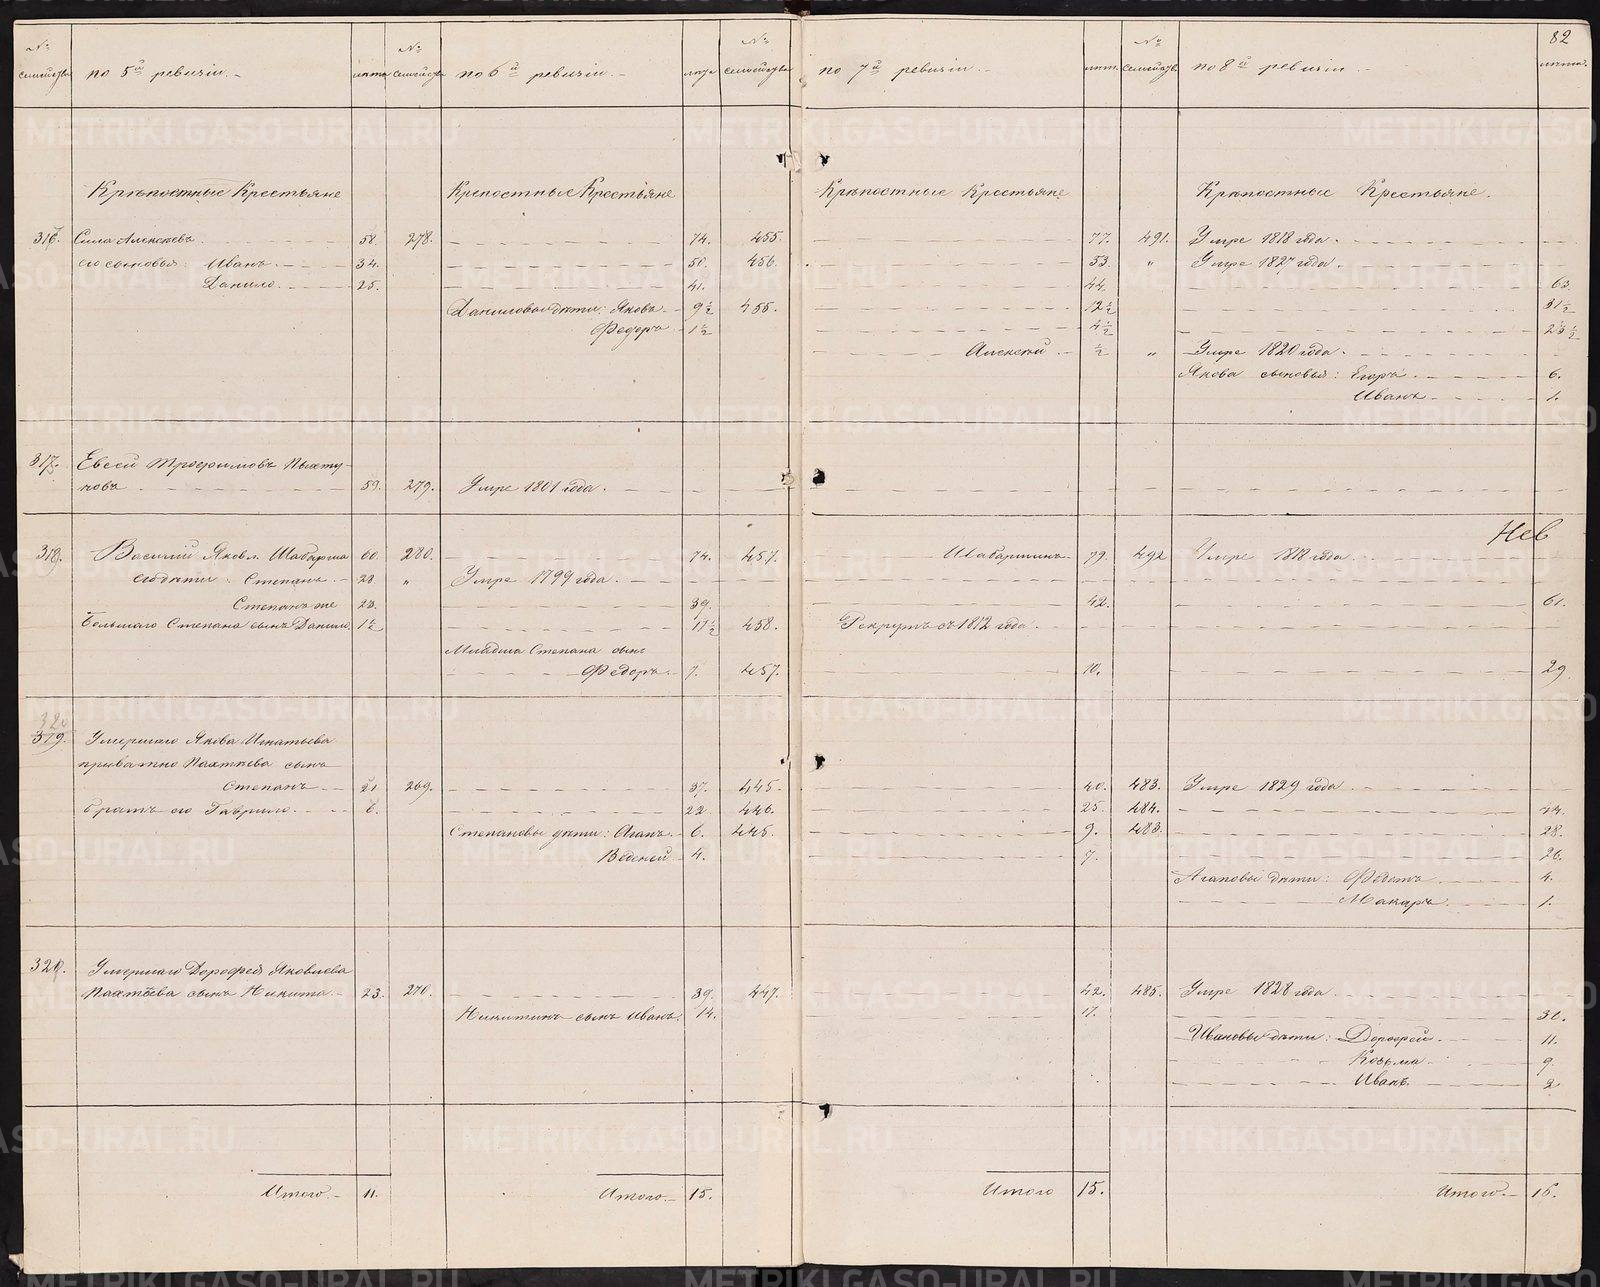 82
№ семейства по 5й ревизіи. лѣта № семейства по 6й ревизіи. лѣта № семейства по 7й ревизіи. лѣта № семейства по 8й ревизіи. лѣта.
Крѣпостные Крестьяне Крепостные Крестьяне Крѣпостные Крестьяне Крѣпостные Крестьяне.
316. Сила Алексѣевъ 58. 278. 74. 455. 77. 491. Умре 1818 года.
его сыновья: Иванъ. 34. 50. 456. 53. " Умре 1827 года.
Данило. 25. 41. 44. 63.
Даниловы дѣти: Яковъ. 9½ 455. 12½ 31½
Федоръ 1½ 4½ 23½
Алексѣй ½ " Умре 1820 года.
Якова сыновья: Егоръ 6.
Иванъ 1.
317. Евсей Трофимовъ Пыхту-
новъ 59. 279. Умре 1801 года.
Нев
318. Василий Яковл. Шабарша 60. 280. 74. 457. Шабаршинъ 79. 492 Умре 1818 года.
его дѣти: Степанъ. 28. " Умре 1799 года.
Степанъ же 23. 39. 42. 61.
Большаго Степана сынъ Данило 1½ 17½ 458. Рекрутъ съ 1812 года.
Младша Степана сынъ
Федоръ. 7. 457. 10. 29.
320
319. Умершаго Якова Игнатьева
приватно Пахтѣева сынъ
Степанъ 21 269. 37. 445. 40. 483. Умре 1829 года
братъ его Гаврило. 6. 22 446. 25. 484. 44.
Степановы дѣти: Агапъ. 6. 445. 9. 483. 28.
Веденей 4. 7. 26.
Агаповы дѣти: Федотъ 4.
Макаръ 1.
321. Умершаго Дорофея Яковлева
Пахтѣева сынъ Никита 23. 270. 39. 447. 42. 485. Умре 1828 года.
Никитинъ сынъ Иванъ. 14. 17. 36.
Ивановы дѣти: Дорофей. 11.
Козьма 9.
Иванъ. 2
Итого 11. Итого 15. Итого 15. Итого 16.
METRIKI.GASO-URAL.RU